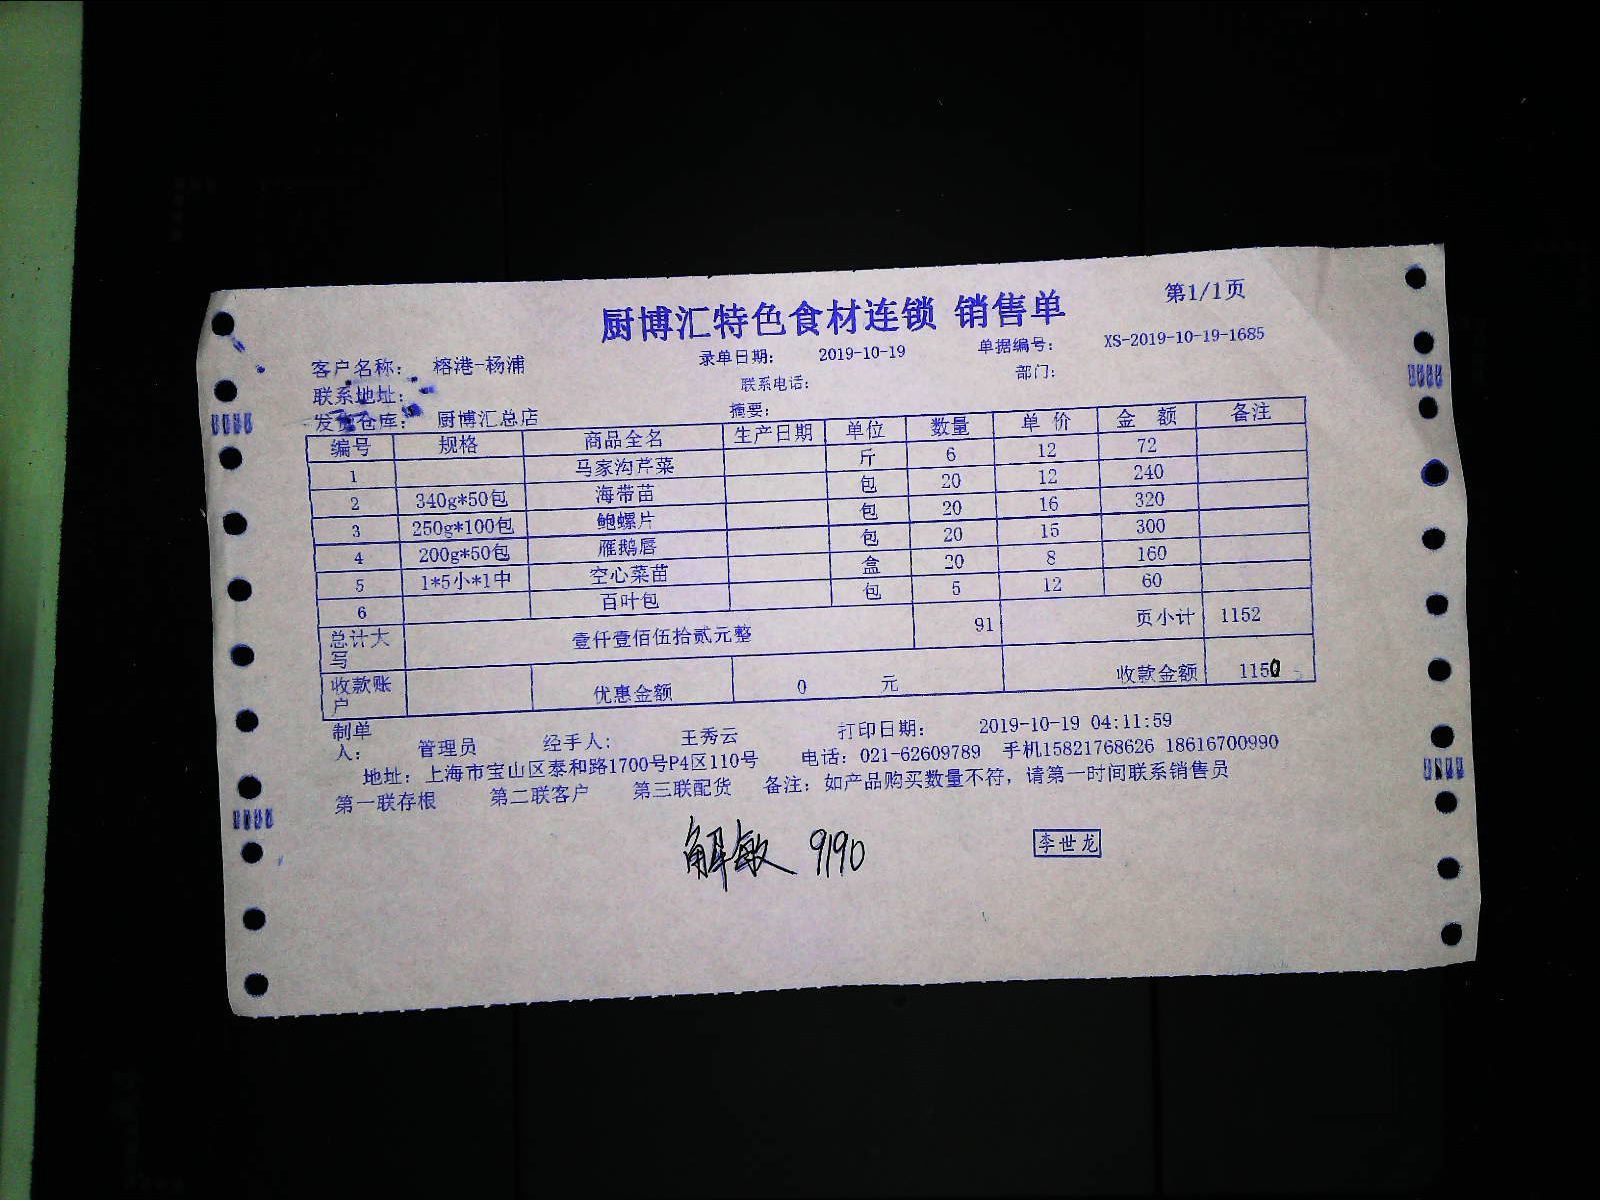 厨博汇特色食材连锁 销售单
第1/1页
客户名称： 榕港-杨浦 录单日期： 2019-10-19 单据编号： XS-2019-10-19-1685
联系地址： 联系电话： 部门：
发货仓库： 厨博汇总店 摘要：
编号 规格 商品全名 生产日期 单位 数量 单价 金额 备注
1 马家沟芹菜 斤 6 12 72
2 340g*50包 海带苗 包 20 12 240
3 250g*100包 鲍螺片 包 20 16 320
4 200g*50包 雁鹅唇 包 20 15 300
5 1*5小*1中 空心菜苗 盒 20 8 160
6 百叶包 包 5 12 60
总计大写 壹仟壹佰伍拾贰元整 91 页小计 1152
收款账户 优惠金额 0 元 收款金额 1150
制单人： 管理员 经手人： 王秀云 打印日期： 2019-10-19 04:11:59
地址： 上海市宝山区泰和路1700号P4区110号 电话：021-62609789 手机15821768626 18616700990
第一联存根 第二联客户 第三联配货 备注：如产品购买数量不符，请第一时间联系销售员
解敏 9190
李世龙